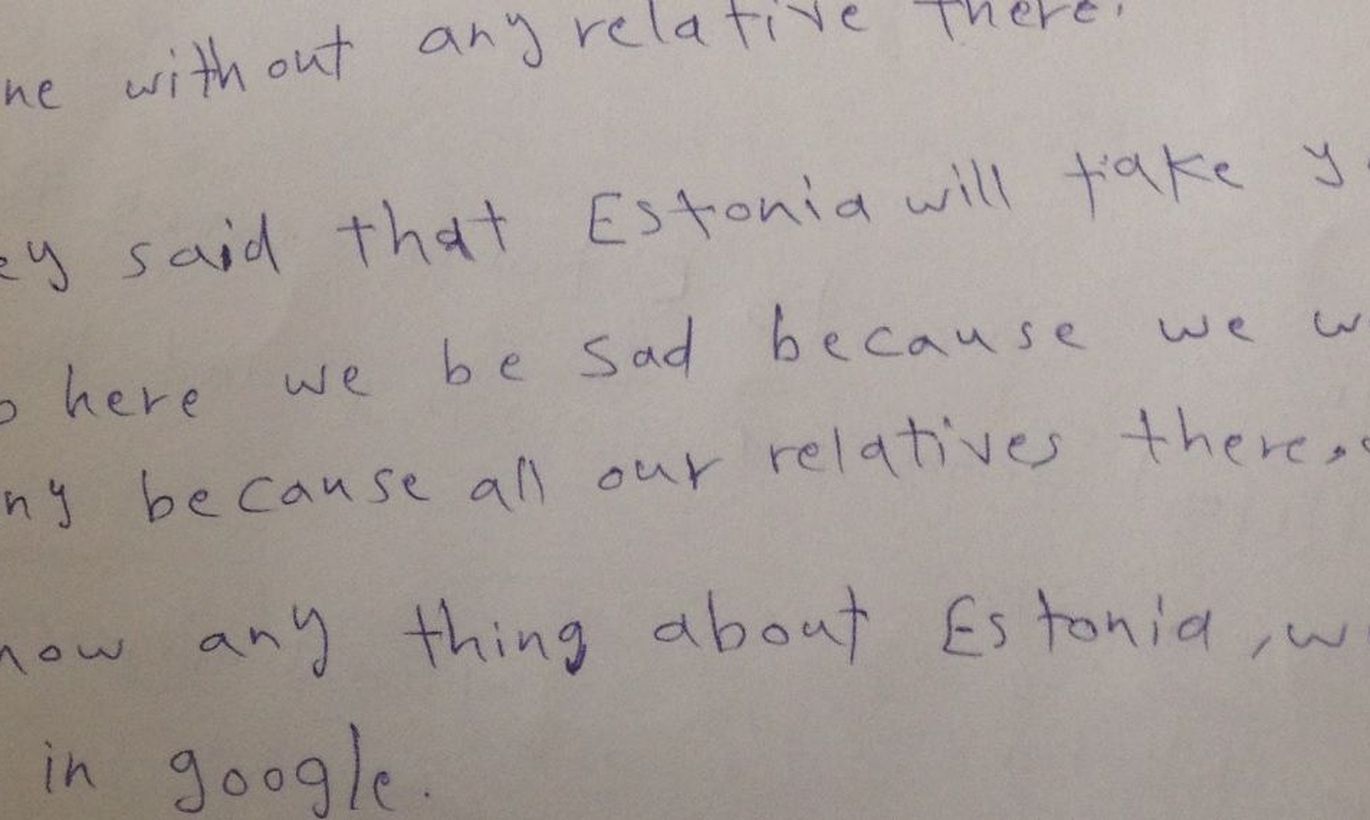 ne without any relative there.
ey said that Estonia will take y
o here we be sad because we w
ny because all our relatives there.
now any thing about Estonia, w
in google.